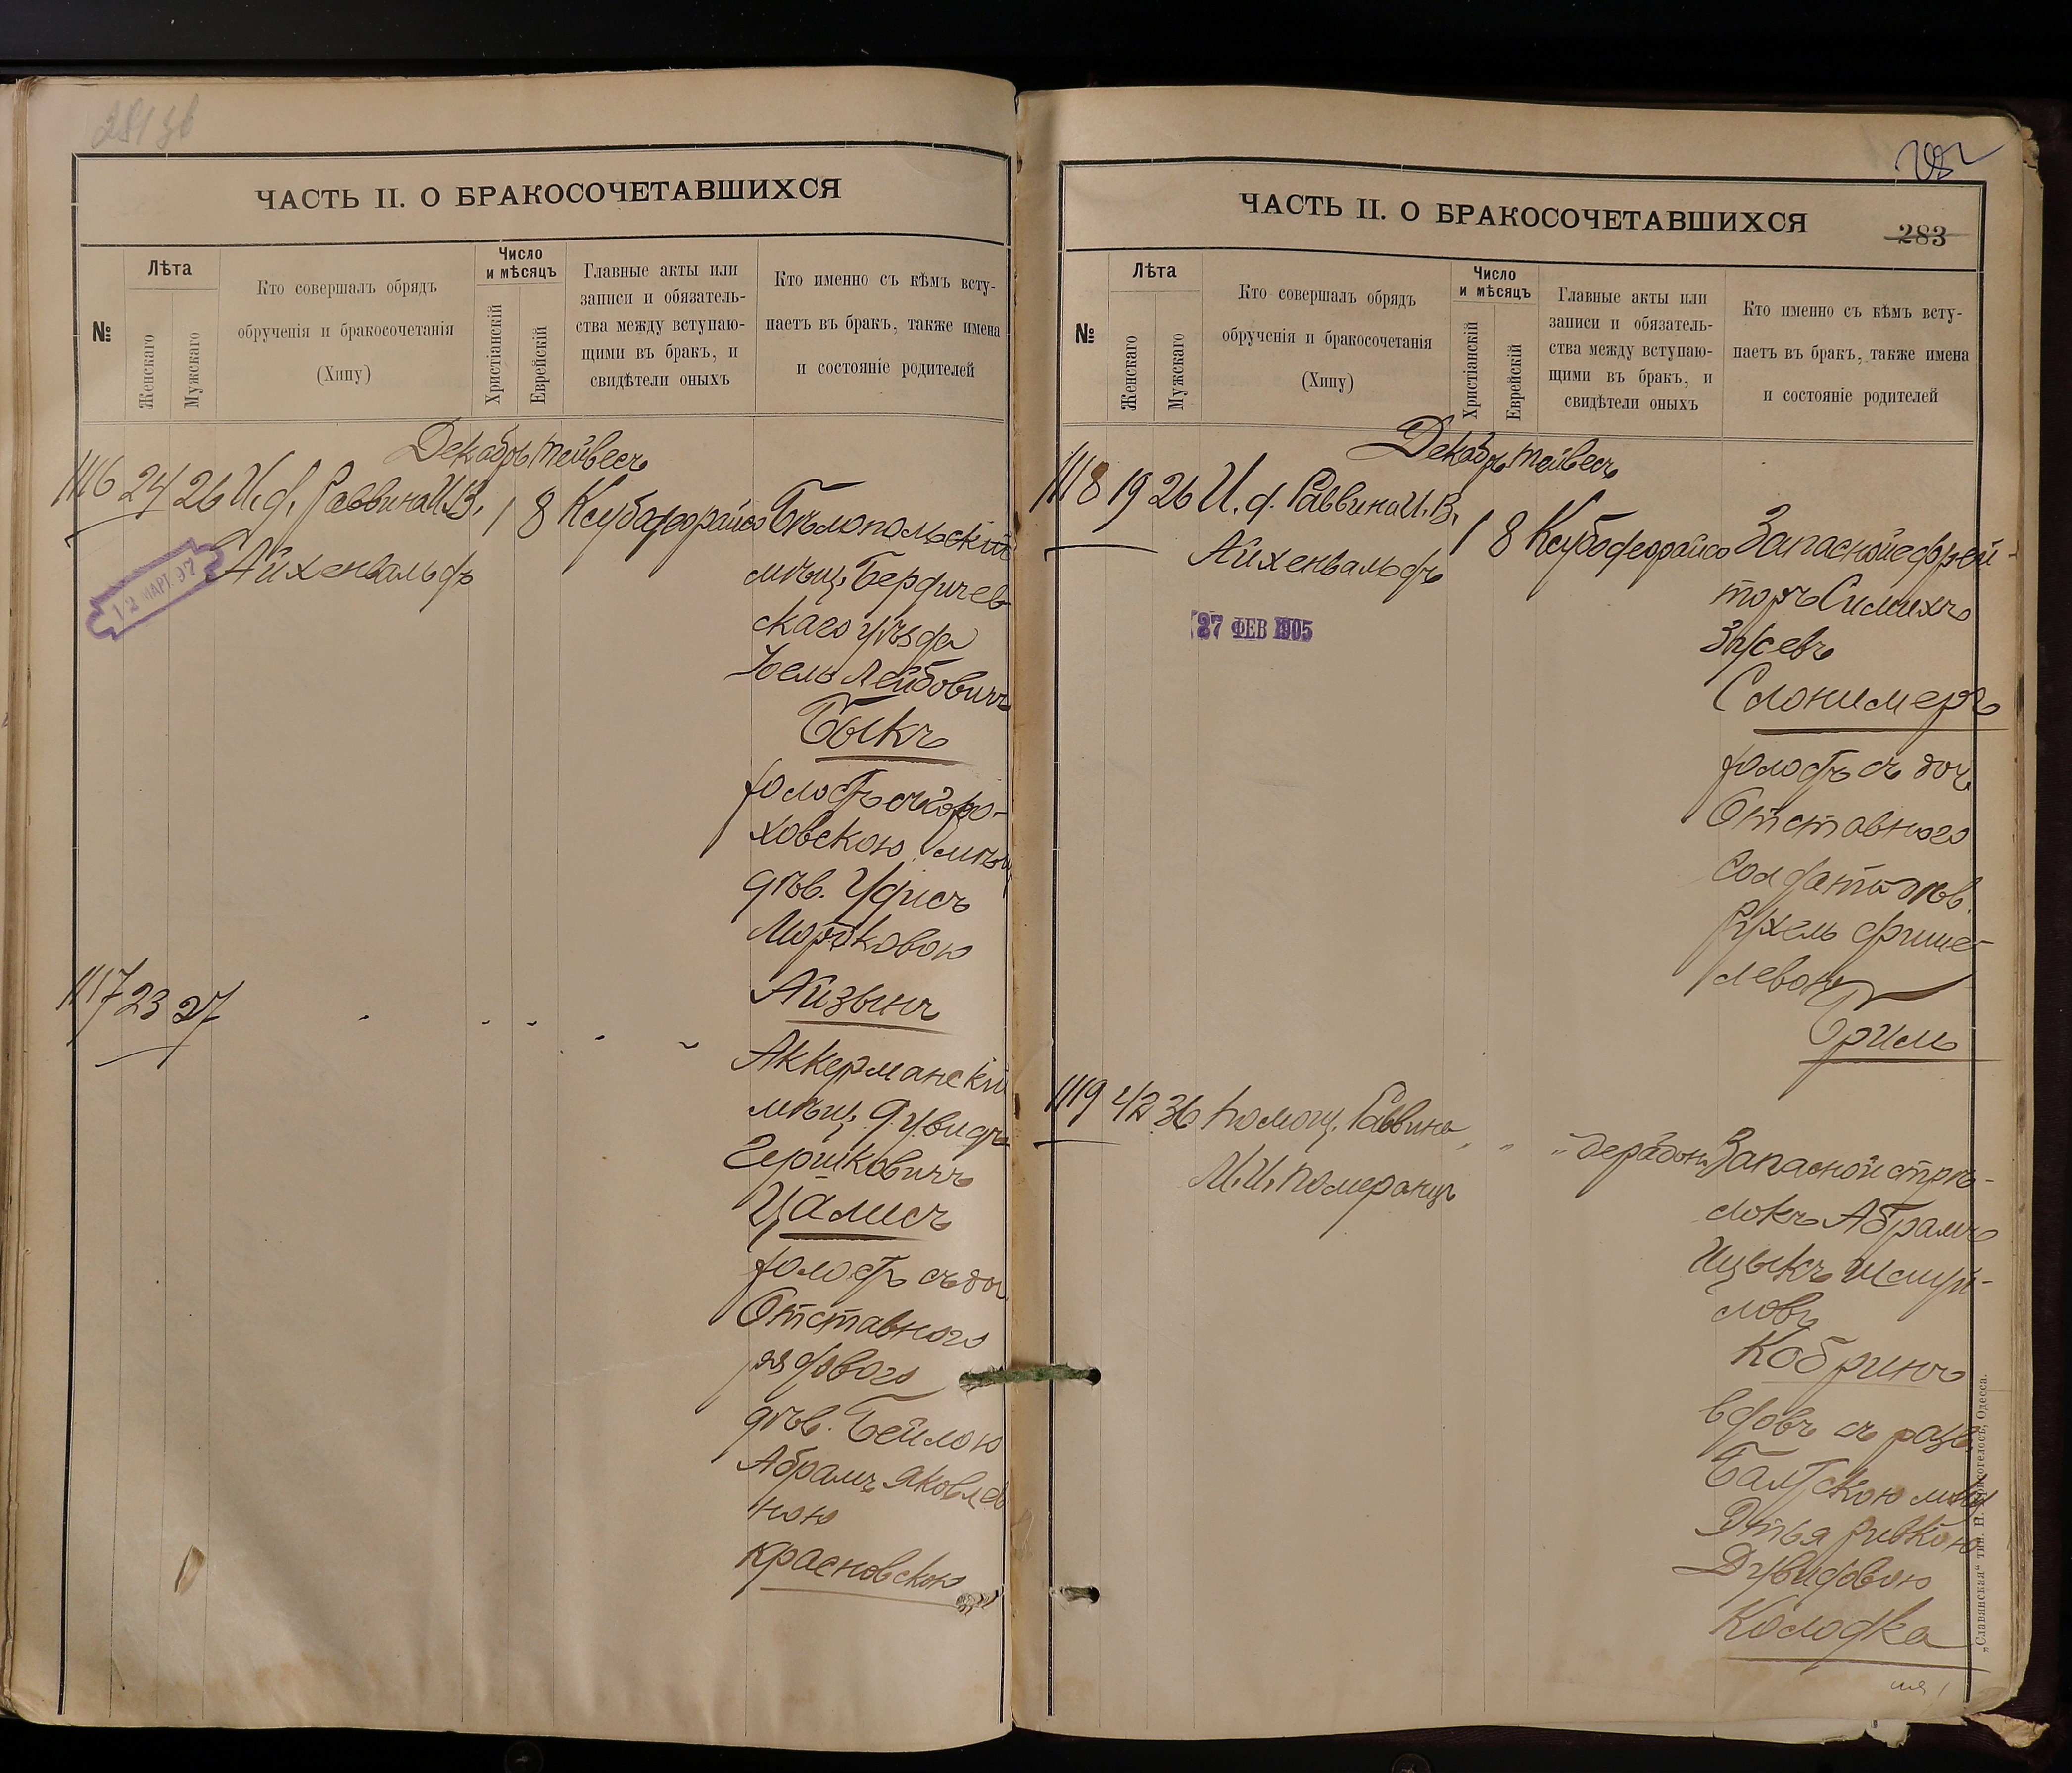 281 зв
ЧАСТЬ II. О БРАКОСОЧЕТАВШИХСЯ
№
Лѣта
Женскаго
Мужскаго
Кто совершалъ обрядъ
обрученія и бракосочетанія
(Хипу)
Число
и мѣсяцъ
Христіанскій
Еврейскій
Главные акты или
записи и обязатель-
ства между вступаю-
щими въ бракъ, и
свидѣтели оныхъ
Кто именно съ кѣмъ всту-
паетъ въ бракъ, также имена
и состояніе родителей
Декабрь тейвесъ
1116 24 26 И. ф. Раввина И. В. 1 8 Ксубо Бѣлопольскій
Айхенвальдъ
12 МАРТ. 97
мѣщ. Бердичев
скаго уѣзда
Іоель Лейбовичъ
Быкъ
холостъ съ Горо-
ховскою мѣщ
дѣв. Удисъ
Мордковою
Айзвинъ
1117 23 27
Аккерманскій
мѣщ. Дувидъ
Гершковичъ
Цалисъ
холостъ съ доч
Отставного
рядового
дѣв. Бейлою
Абрамъ Яковлев
ною
Красновскою
ЧАСТЬ II. О БРАКОСОЧЕТАВШИХСЯ
282
283
№
Лѣта
Женскаго
Мужскаго
Кто совершалъ обрядъ
обрученія и бракосочетанія
(Хипу)
Число
и мѣсяцъ
Христіанскій
Еврейскій
Главные акты или
записи и обязатель-
ства между вступаю-
щими въ бракъ, и
свидѣтели оныхъ
Кто именно съ кѣмъ всту-
паетъ въ бракъ, также имена
и состояніе родителей
Декабрь тейвесъ
1118 19 26 И. ф. Раввина И. В. 1 8 Ксубо Запасной ефрей-
Айхенвальдъ
27 ФЕВ 1905
торъ Симихъ
Зусевъ
Слонимеръ
холостъ съ доч.
Отставного
Солдата дѣв.
Рухель Фише-
левою
Бримъ
1119 42 36 Помощ. Раввина " " " Запасной стрѣ-
М. И. Померанцъ
локъ Абрамъ
Ицыкъ Шмуй-
ловъ
Кобринъ
вдовъ съ разв.
Балтскою мѣщ
Этья Ривкою
Дувидовою
Колодка
„Славянская“ тип. Н. Хрисогелосъ, Одесса.